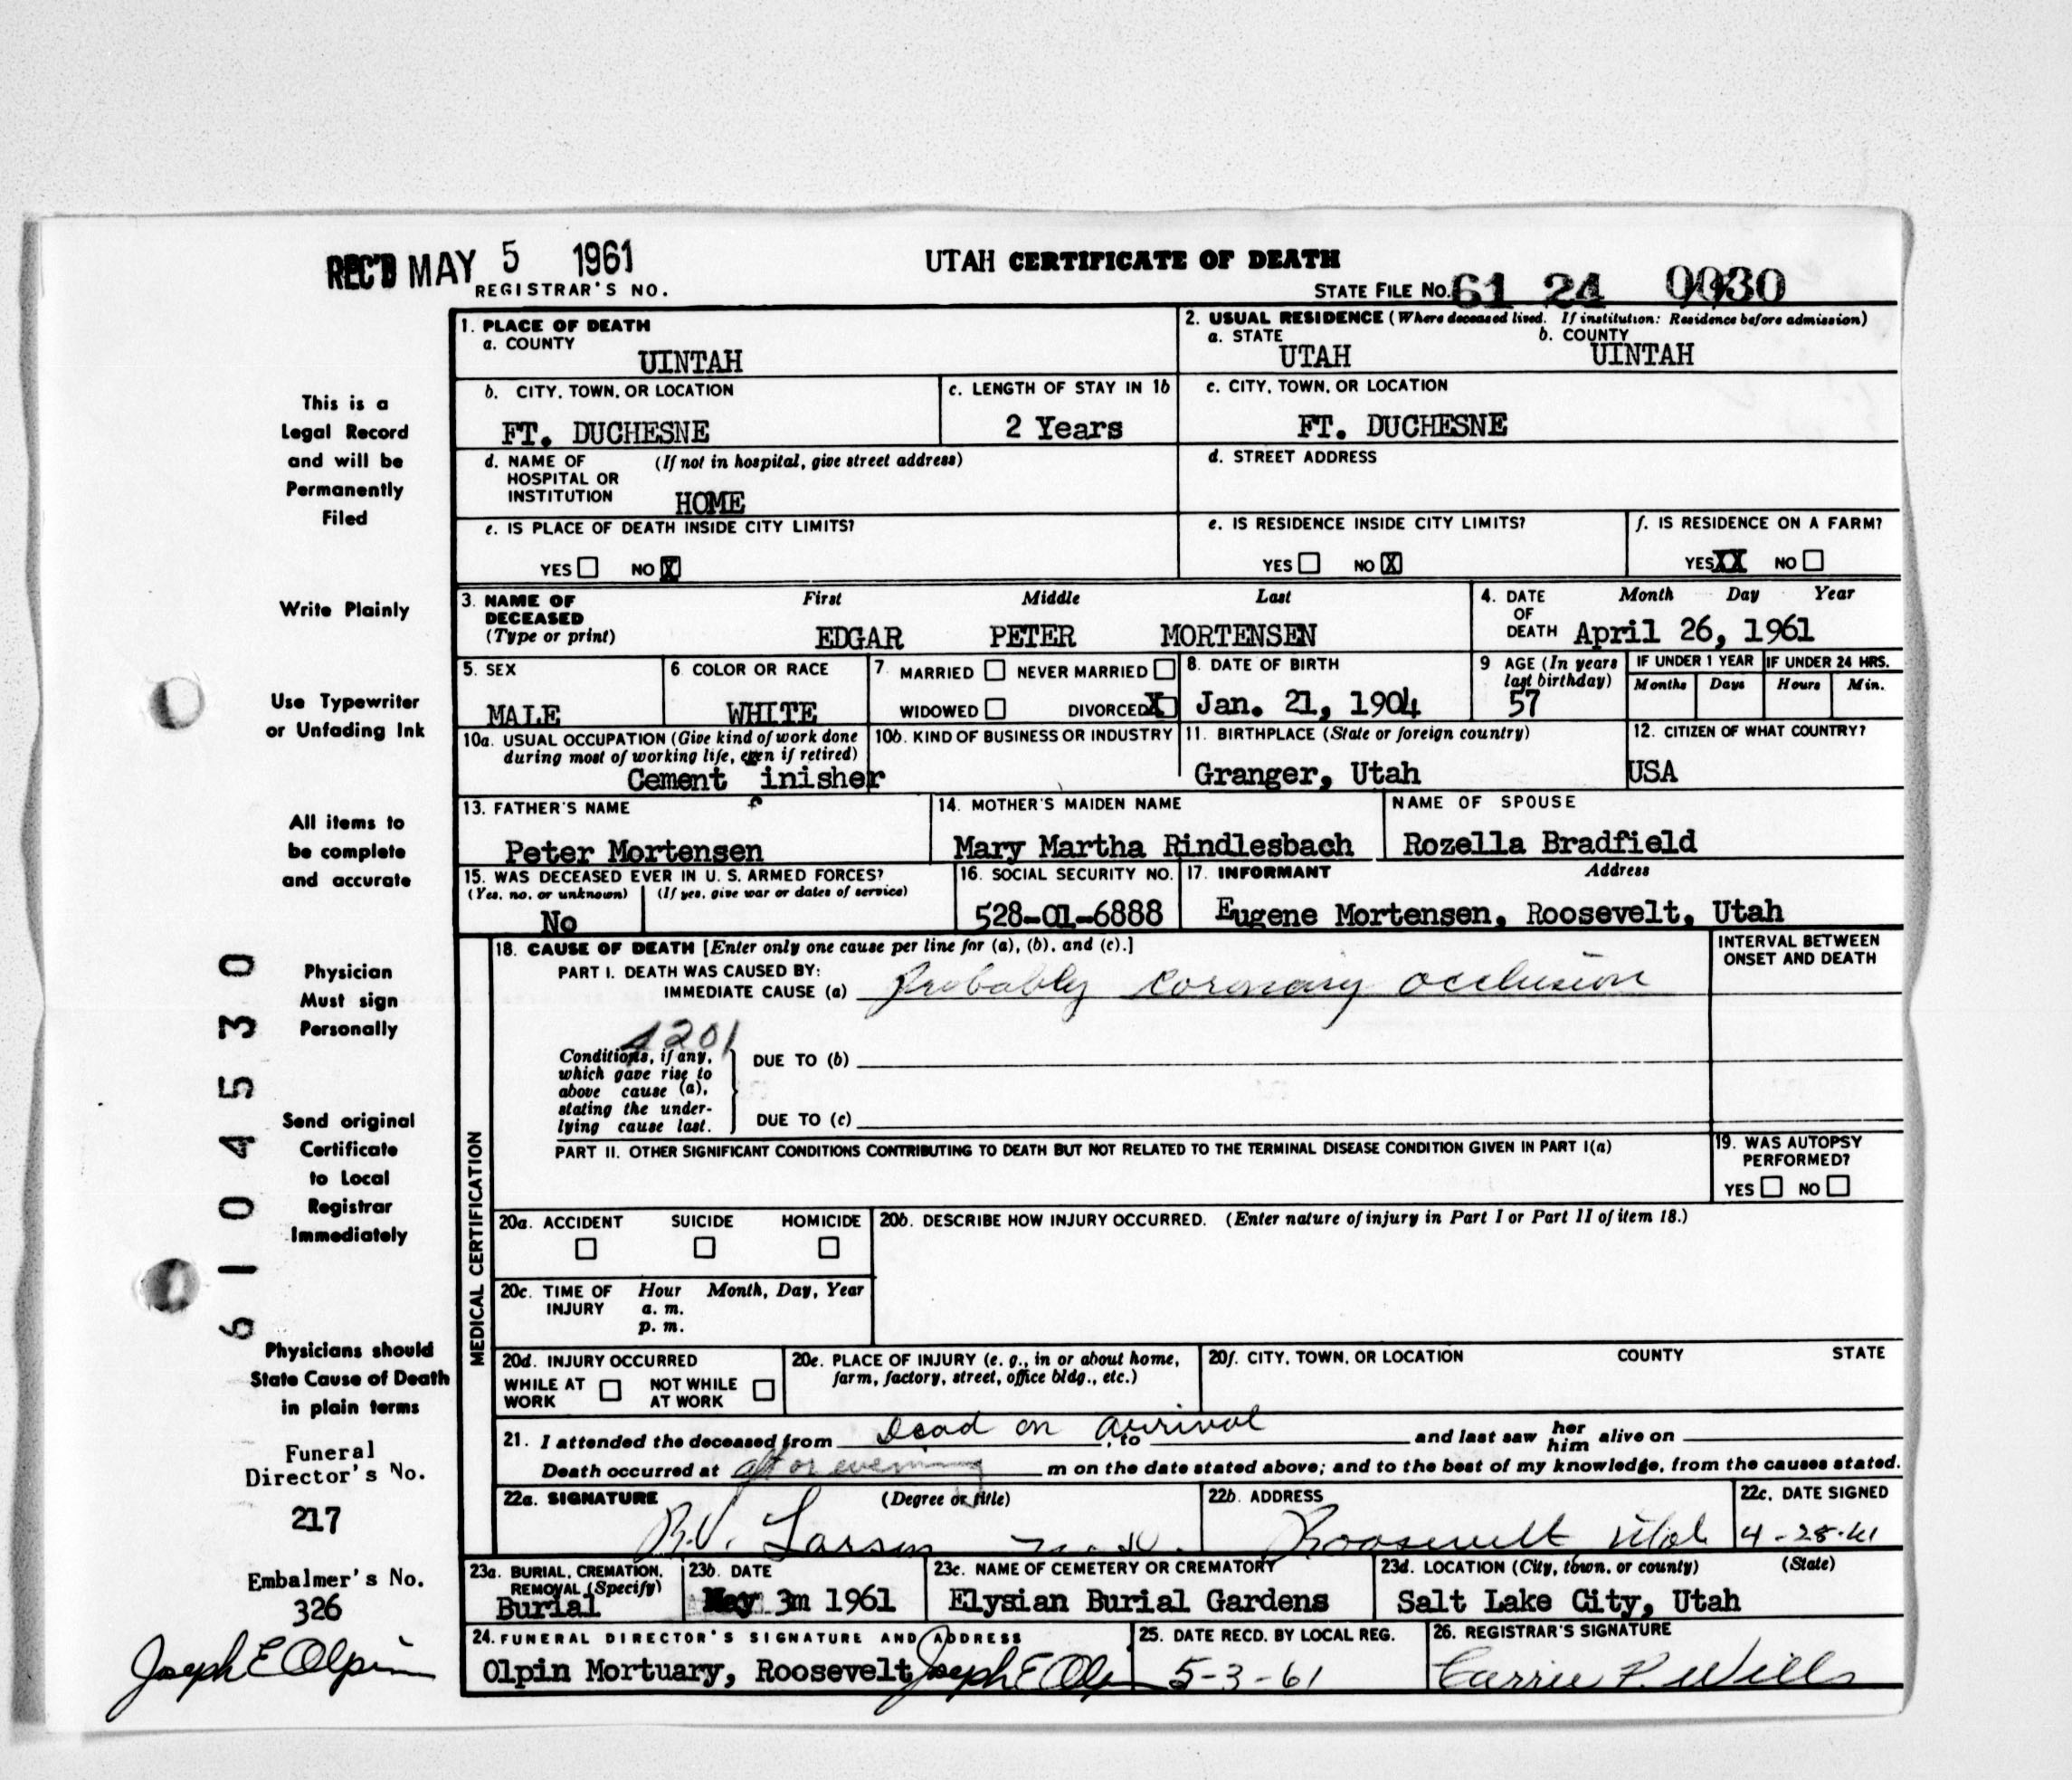 REC'D MAY 5 1961
REGISTRAR'S NO.
UTAH CERTIFICATE OF DEATH
STATE FILE No. 61 24 0030
This is a
Legal Record
and will be
Permanently
Filed
Write Plainly
Use Typewriter
or Unfading Ink
All items to
be complete
and accurate
Physician
Must sign
Personally
Send original
Certificate
to Local
Registrar
Immediately
Physicians should
State Cause of Death
in plain terms
Funeral
Director's No.
217
Embalmer's No.
326
Joseph E Olpin
61045530
1. PLACE OF DEATH
a. COUNTY
UINTAH
2. USUAL RESIDENCE (Where deceased lived. If institution: Residence before admission)
a. STATE b. COUNTY
UTAH UINTAH
b. CITY, TOWN, OR LOCATION
FT. DUCHESNE
c. LENGTH OF STAY IN 1b
2 Years
c. CITY, TOWN, OR LOCATION
FT. DUCHESNE
d. NAME OF (If not in hospital, give street address)
HOSPITAL OR
INSTITUTION HOME
d. STREET ADDRESS
e. IS PLACE OF DEATH INSIDE CITY LIMITS?
YES NO X
e. IS RESIDENCE INSIDE CITY LIMITS?
YES NO X
f. IS RESIDENCE ON A FARM?
YES XX NO
3. NAME OF DECEASED First Middle Last
(Type or print) EDGAR PETER MORTENSEN
4. DATE OF DEATH Month Day Year
April 26, 1961
5. SEX
MALE
6. COLOR OR RACE
WHITE
7. MARRIED NEVER MARRIED
WIDOWED DIVORCED X
8. DATE OF BIRTH
Jan. 21, 1904
9 AGE (In years last birthday)
57
IF UNDER 1 YEAR IF UNDER 24 HRS.
Months Days Hours Min.
10a. USUAL OCCUPATION (Give kind of work done
during most of working life, even if retired)
Cement inisher
f
10b. KIND OF BUSINESS OR INDUSTRY
11. BIRTHPLACE (State or foreign country)
Granger, Utah
12. CITIZEN OF WHAT COUNTRY?
USA
13. FATHER'S NAME
Peter Mortensen
14. MOTHER'S MAIDEN NAME
Mary Martha Rindlesbach
NAME OF SPOUSE
Rozella Bradfield
15. WAS DECEASED EVER IN U. S. ARMED FORCES?
(Yes, no, or unknown) (If yes, give war or dates of service)
No
16. SOCIAL SECURITY NO.
528-01-6888
17. INFORMANT Address
Eugene Mortensen, Roosevelt, Utah
MEDICAL CERTIFICATION
18. CAUSE OF DEATH [Enter only one cause per line for (a), (b), and (c).]
INTERVAL BETWEEN
ONSET AND DEATH
PART I. DEATH WAS CAUSED BY:
IMMEDIATE CAUSE (a) Probably coronary occlusion
4201
Conditions, if any,
which gave rise to
above cause (a),
stating the under-
lying cause last.
DUE TO (b)
DUE TO (c)
PART II. OTHER SIGNIFICANT CONDITIONS CONTRIBUTING TO DEATH BUT NOT RELATED TO THE TERMINAL DISEASE CONDITION GIVEN IN PART I(a)
19. WAS AUTOPSY
PERFORMED?
YES NO
20a. ACCIDENT SUICIDE HOMICIDE
20b. DESCRIBE HOW INJURY OCCURRED. (Enter nature of injury in Part I or Part II of item 18.)
20c. TIME OF INJURY Hour Month, Day, Year
a. m.
p. m.
20d. INJURY OCCURRED
WHILE AT WORK NOT WHILE AT WORK
20e. PLACE OF INJURY (e. g., in or about home,
farm, factory, street, office bldg., etc.)
20f. CITY, TOWN, OR LOCATION COUNTY STATE
21. I attended the deceased from Dead on arrival, to and last saw her him alive on
Death occurred at aft or evening m on the date stated above; and to the best of my knowledge, from the causes stated.
22a. SIGNATURE (Degree or title)
R.V. Larson M.D.
22b. ADDRESS
Roosevelt Utah
22c. DATE SIGNED
4-28-61
23a. BURIAL, CREMATION,
REMOVAL (Specify)
Burial
23b. DATE
May 3m 1961
23c. NAME OF CEMETERY OR CREMATORY
Elysian Burial Gardens
23d. LOCATION (City, town, or county) (State)
Salt Lake City, Utah
24. FUNERAL DIRECTOR'S SIGNATURE AND ADDRESS
Olpin Mortuary, Roosevelt Joseph E Olpin
25. DATE RECD. BY LOCAL REG.
5-3-61
26. REGISTRAR'S SIGNATURE
Carrie P. Wills